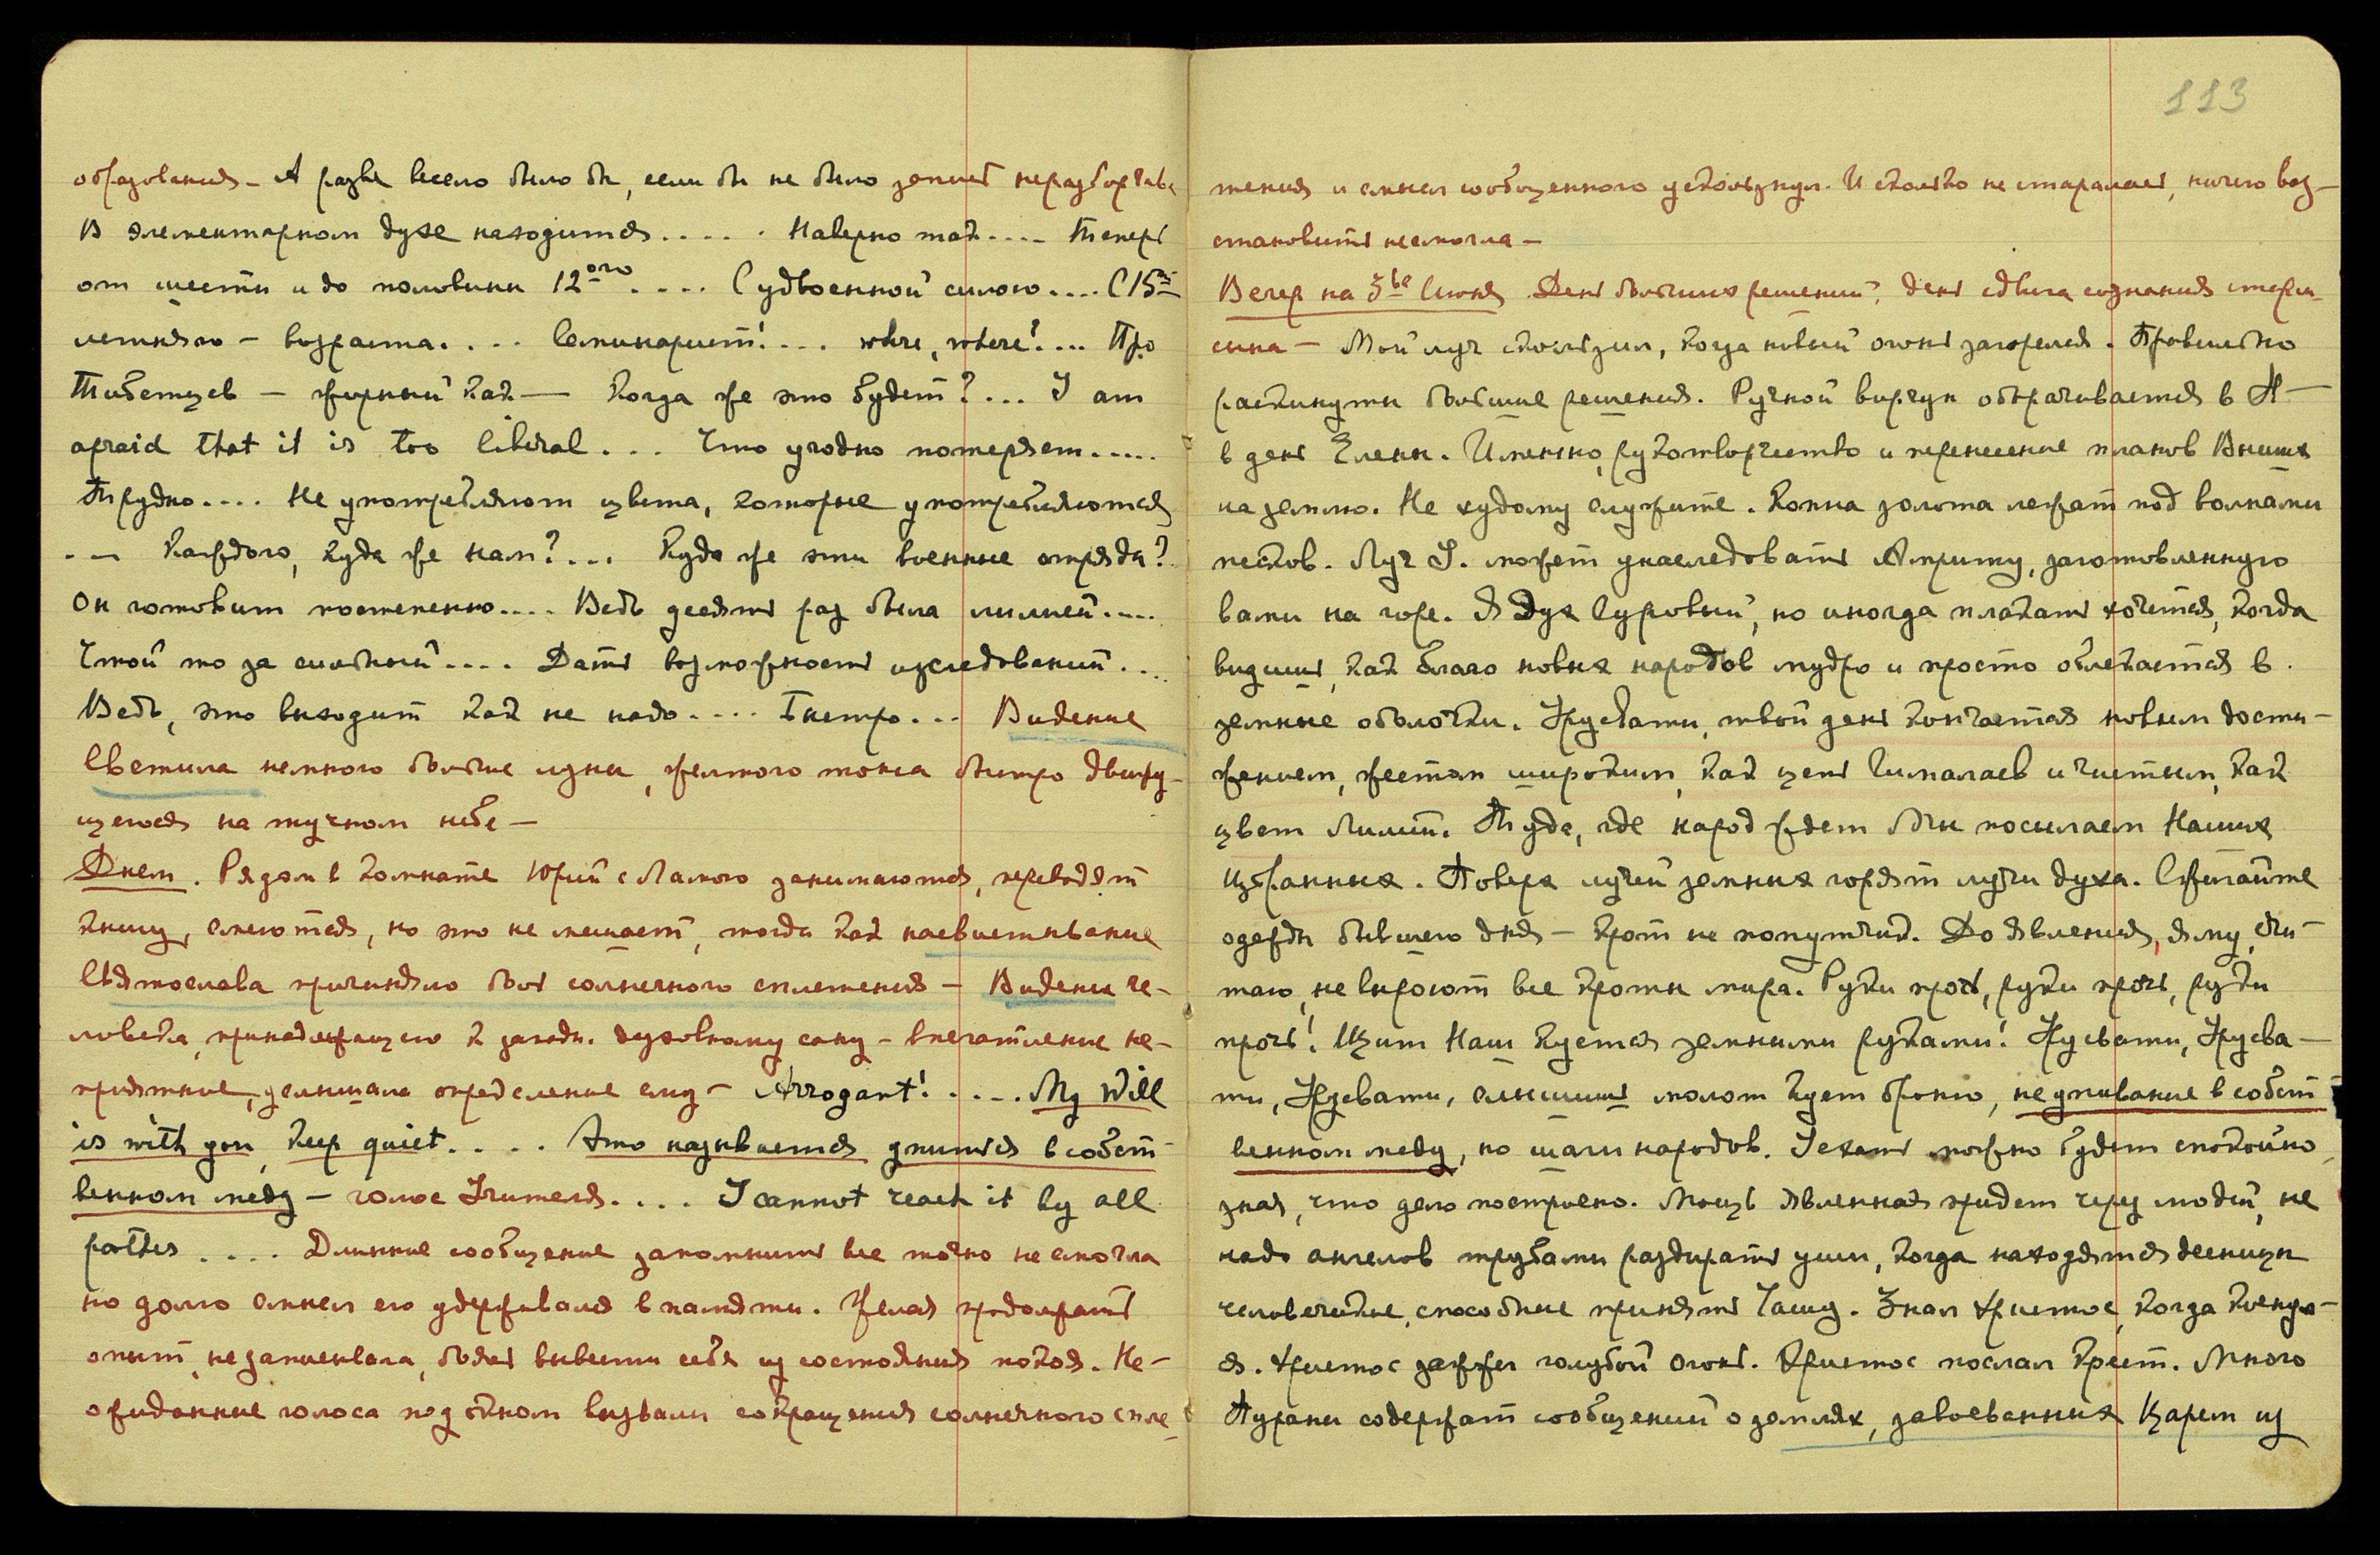 образования – А разве весело было бы, если бы не было запись неразборчива
В элементарном духе находится..... Наверно так.... Теперь
от шести и до половины 12ого.... С удвоенной силою.... С 15ти
летняго – возраста.... Семинарист!... where, where?... Про
Тибетцев – жирный как — Когда же это будет?... I am
afraid that it is too liberal... Что угодно потеряет.....
Трудно.... Не употребляют цвета, которые употребляются
... Каждого, куда же нам?... Куда же эти военные отряды?
Он готовит постепенно.... Ведь десять раз была милией....
Чтой то за сильный.... Дать возможность изследований...
Ведь, это выходит как не надо.... Быстро... Видение
Светила немного больше луны, желтого тона быстро движу-
щегося на тучном небе –
Днем. Рядом в комнате Юрий с Ламою занимаются, переводят
книгу, смеются, но это не мешает, тогда как насвистывание
Святослава причиняло боль солнечного сплетения – Видение че-
ловека, принадлежащего к западн. духовному сану – впечатление не-
приятное, услышала определение ему – Arrogant!..... My Will
is with you, keep quiet..... Это называется упиться в собст-
венном меду – голос Учителя.... I cannot reach it by all
pathes.... Длинное сообщение запомнить все точно не смогла
но долго смысл его удерживался в памяти. Желая продолжать
опыт, не записывала, боясь вывести себя из состояния покоя. Не-
ожиданные голоса под окном вызвали сокращения солнечного спле-
113
тения и смысл сообщенного ускользнул. И сколько не старалась, ничего воз-
становить не могла –
Вечер на 3ье Июня. День больших решений, день сдвига сознания стары-
сина – Мой луч скользил, когда новый огонь загорелся. Правильно
раскинуты большие решения. Ручной ворчун оборачивается в А—
в день Елены. Именно, рукотворчество и перенесение планов Вышних
на землю. Не худому служите. Копна золота лежат под волнами
песков. Луч У. может унаследовать Амриту, заготовленную
вами на горе. Я Дух Суровый, но иногда плакать хочется, когда
видишь, как благо новых народов мудро и просто облекается в
земные оболочки. Урусвати, твой день кончается новым дости-
жением, жестом широким, как цепь Гималаев и чистым, как
цвет Лилии. Туда, где народ ждет Мы посылаем Наших
Избранных. Поверх лучей земных горят лучи духа. Сжигайте
одежды бывшего дня – крот не попутчик. До явления, яму, счи-
таю, не выроют все кроты мира. Руки прочь, руки прочь, руки
прочь! Щит Наш куется земными руками! Урусвати, Урусва-
ти, Урусвати, слышишь молот кует броню, не упивание в собст-
венном меду, но шаги народов. Уехать можно будет спокойно,
зная, что дело построено. Мощь явленная придет через людей, не
надо ангелов трубами раздирать уши, когда находятся десницы
человеческие, способные принять Чашу. Знал Христос, когда
я. Христос зажжел голубой огонь. Христос послал Крест. Много
Пураны содержат сообщений о землях, завоеванных Царем из